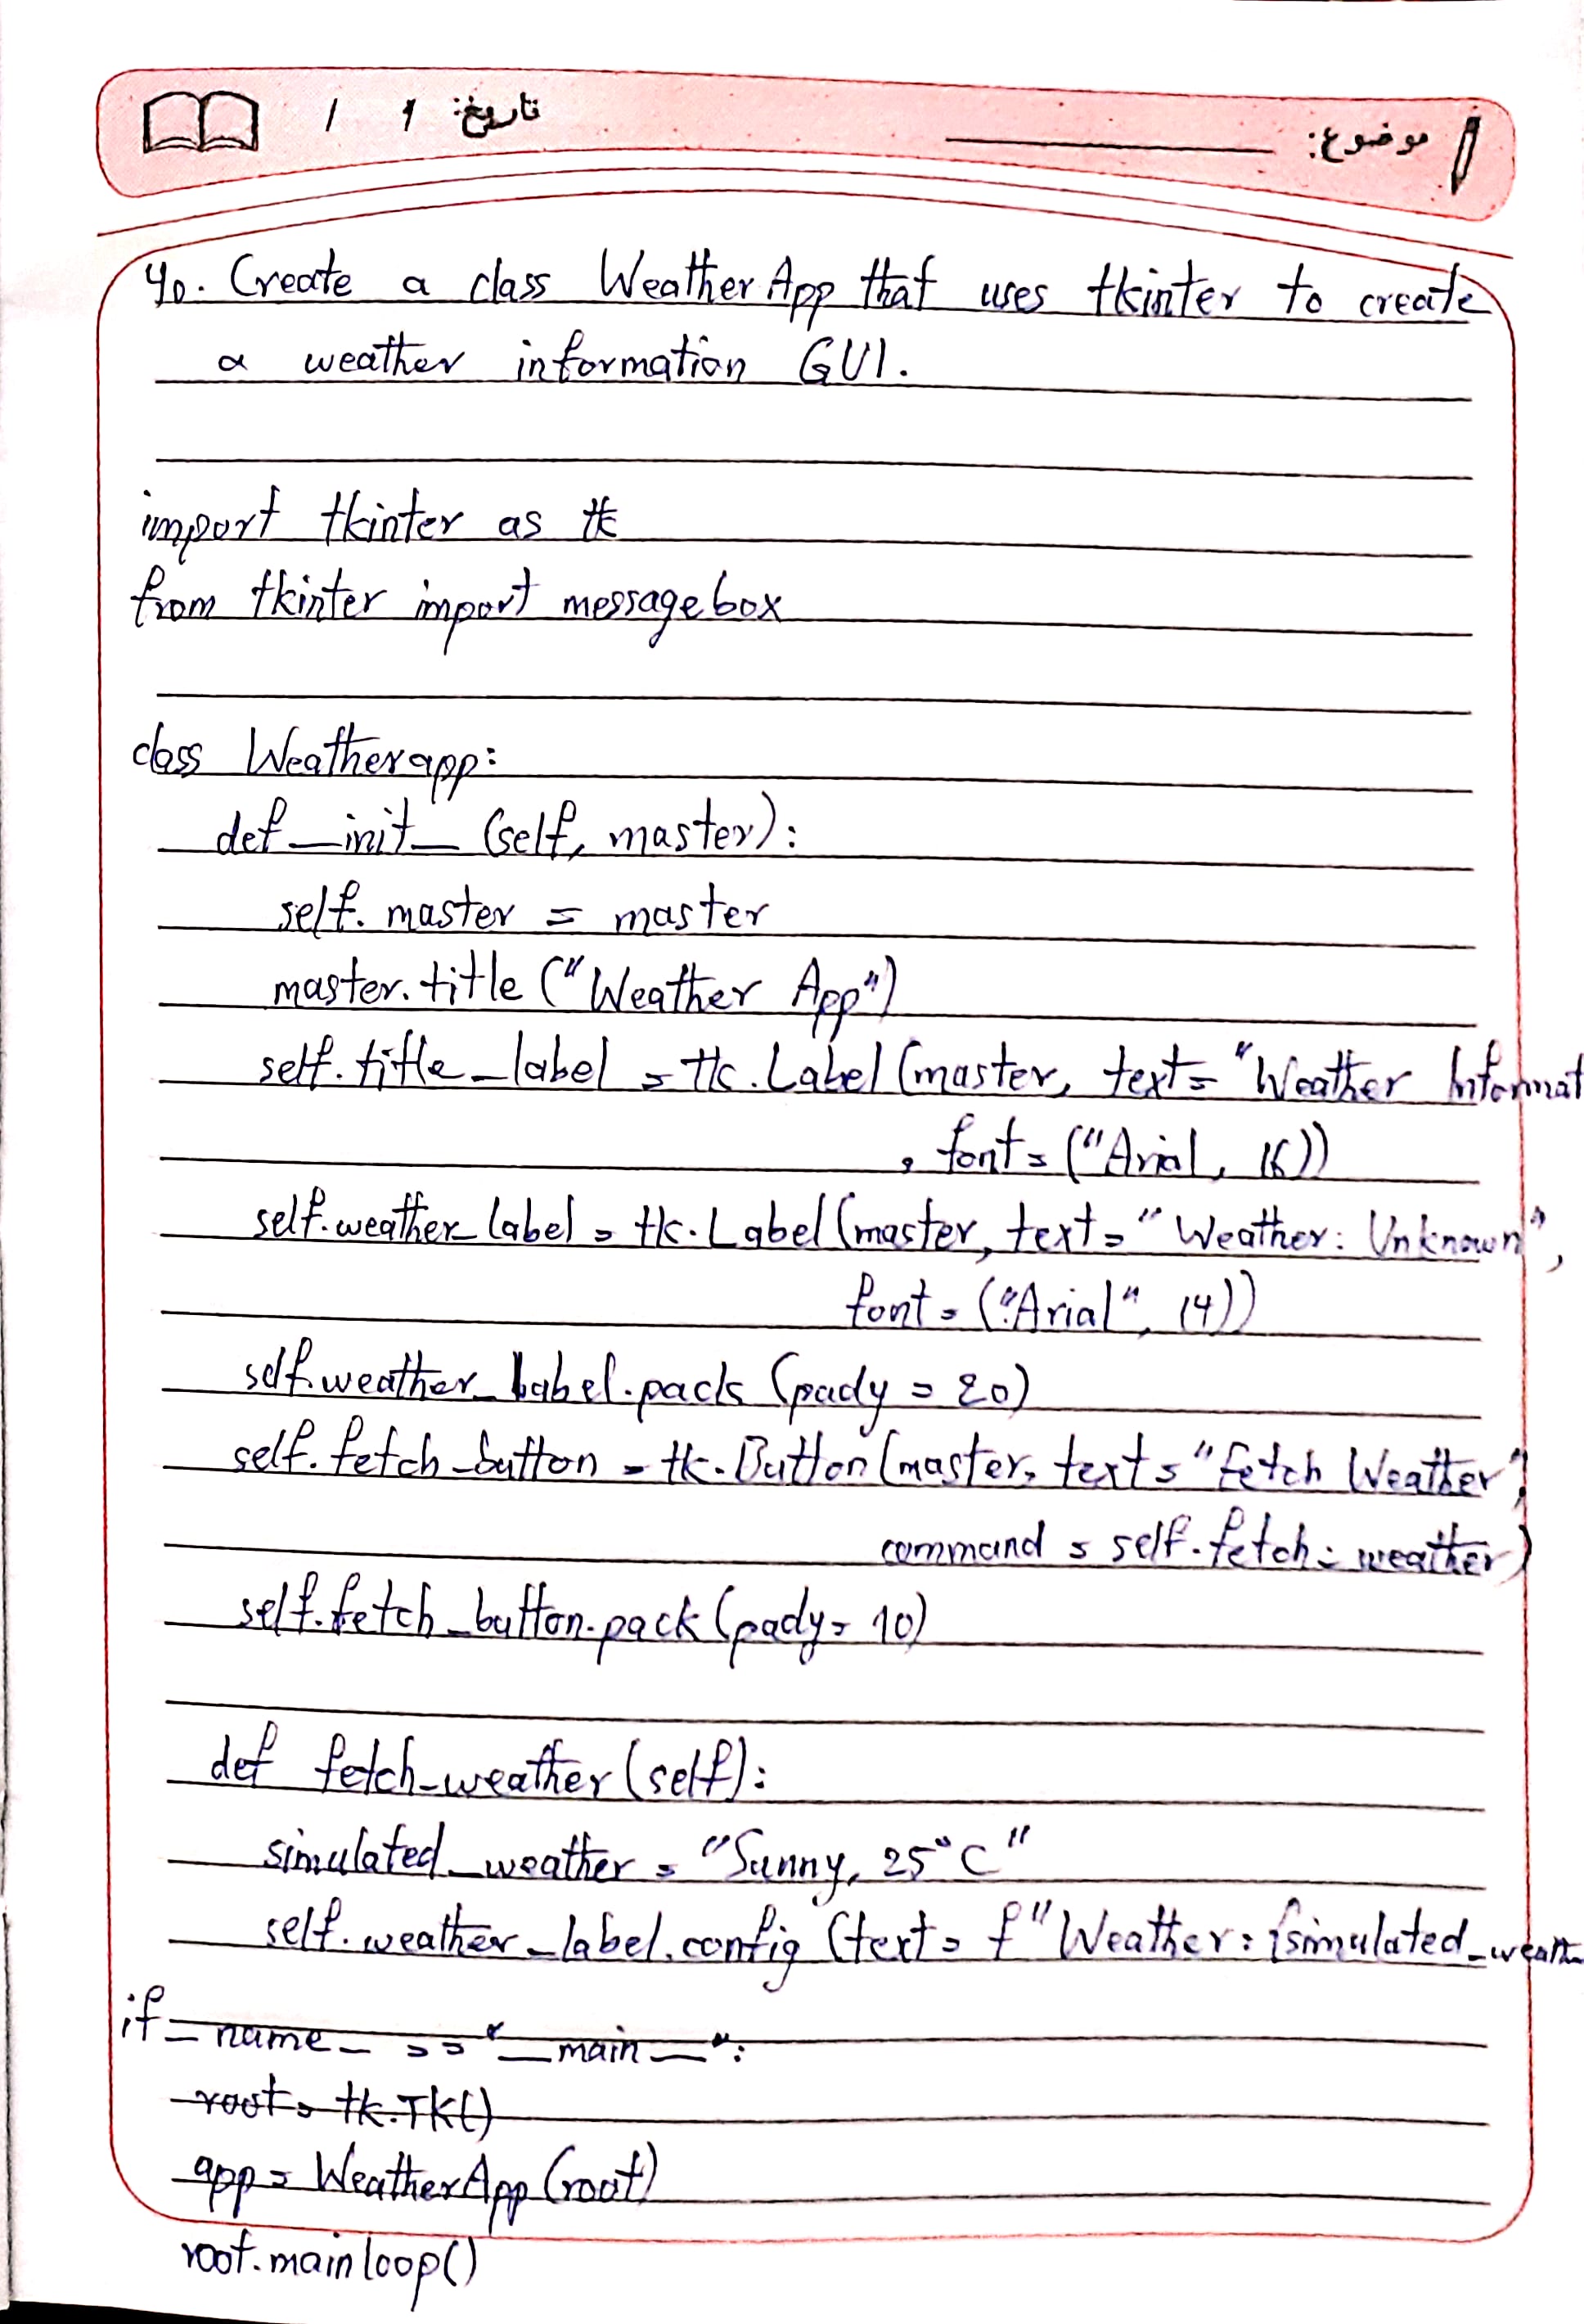 موضوع: تاریخ: / /
40. Create a class WeatherApp that uses tkinter to create
a weather information GUI.
import tkinter as tk
from tkinter import messagebox
class Weatherapp:
def _init_ (self, master):
self.master = master
master.title ("Weather App")
self.title_label = tk.Label (master, text= "Weather Informat
, font= ("Arial, 16))
self.weather_label = tk.Label (master, text= "Weather: Unknown",
font= ("Arial", 14))
self.weather_label.pack (pady = 20)
self.fetch_button = tk.Button (master, text= "fetch Weather",
command = self.fetch_weather)
self.fetch_button.pack (pady= 10)
def fetch_weather (self):
simulated_weather = "Sunny, 25°C"
self.weather_label.config (text= f"Weather: {simulated_weath
if _name_ == "_main_":
root= tk.Tk()
app= WeatherApp (root)
root.mainloop()